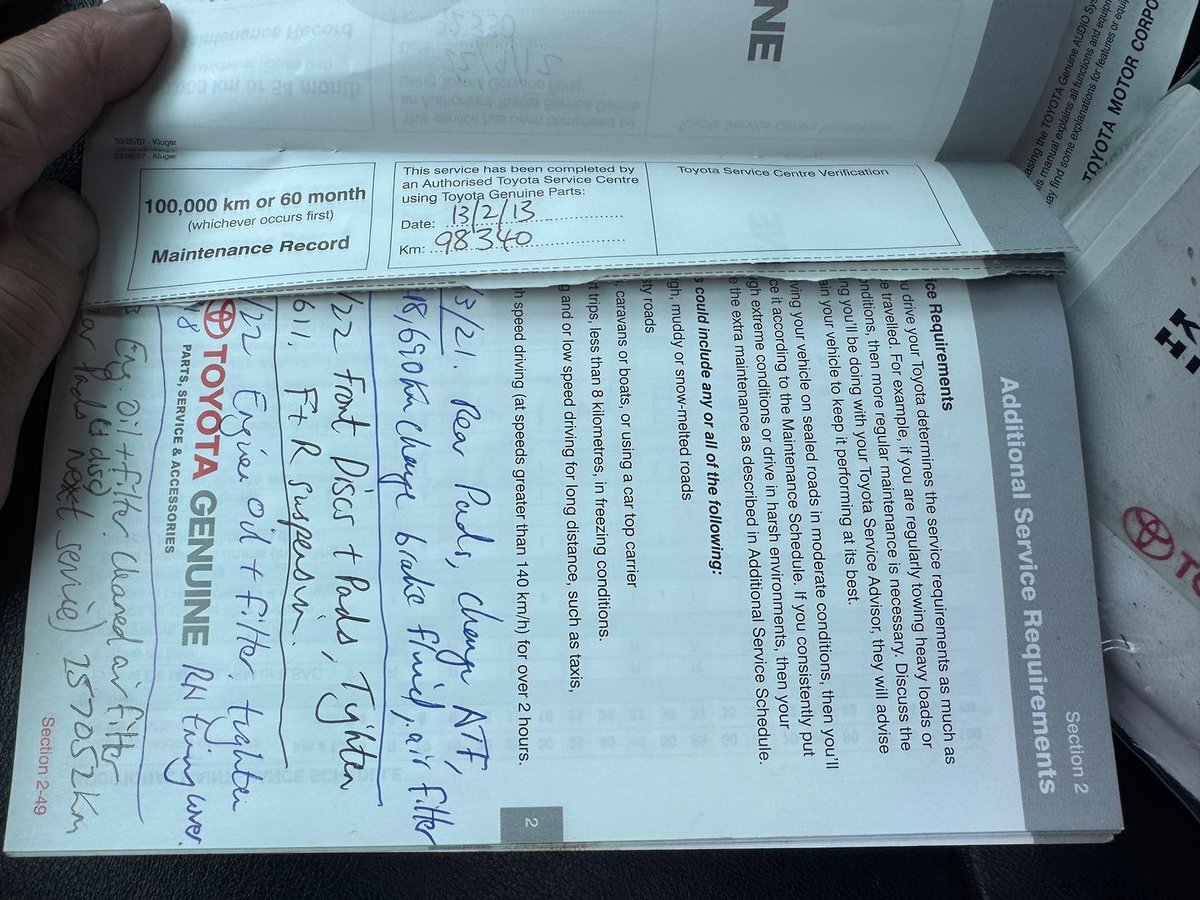 NE
03/05/07 - Kluger
03/05/07 - Kluger
100,000 km or 60 month
(whichever occurs first)
Maintenance Record
This service has been completed by
an Authorised Toyota Service Centre
using Toyota Genuine Parts:
Date: 13/2/13
Km: 98340
Toyota Service Centre Verification
Section 2
Additional Service Requirements
ce Requirements
u drive your Toyota determines the service requirements as much as
e travelled. For example, if you are regularly towing heavy loads or
onditions, then more regular maintenance is necessary. Discuss the
ng you'll be doing with your Toyota Service Advisor, they will advise
ain your vehicle to keep it performing at its best.
ving your vehicle on sealed roads in moderate conditions, then you'll
ce it according to the Maintenance Schedule. If you consistently put
gh extreme conditions or drive in harsh environments, then your
e the extra maintenance as described in Additional Service Schedule.
s could include any or all of the following:
gh, muddy or snow-melted roads
ty roads
caravans or boats, or using a car top carrier
t trips, less than 8 kilometres, in freezing conditions.
g and or low speed driving for long distance, such as taxis,
h speed driving (at speeds greater than 140 km/h) for over 2 hours.
2
3/21. Rear Pads, change ATF,
18,690km change brake fluid, air filter
/22 Front Discs + Pads, Tighten
611. F+R suspension.
/22 Engine oil + filter. tighten
18
RH timing cover.
TOYOTA GENUINE
PARTS, SERVICE & ACCESSORIES
3 Eng. oil + filter. Cleaned air filter
ar Pads (+ disc) next service) 257052km
Section 2-49
asing the TOYOTA Genuine AUDIO Sys
is manual explains all functions and equipm
ay find some explanations for features or equip
TOYOTA MOTOR CORPO